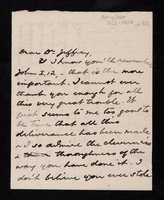 Dear Dr. Jeffrey,
I know you'll remember
John 2, 12, - that is the more
important. I cannot ever
thank you enough for all
this very great trouble. It
just seems to me too good to
be true that all this
deliverance has been made
and so admire the cleverness
& thoroughness of the
way you have done it. I
don't believe you ever stole